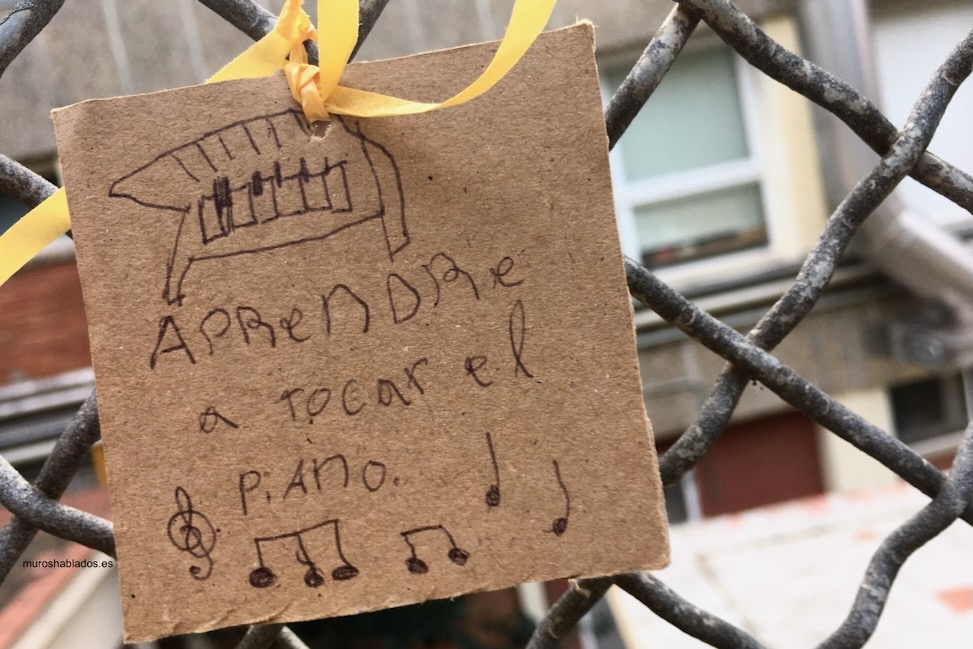 APRENDRE
a TOCAR el
PiANO.
muroshablados.es